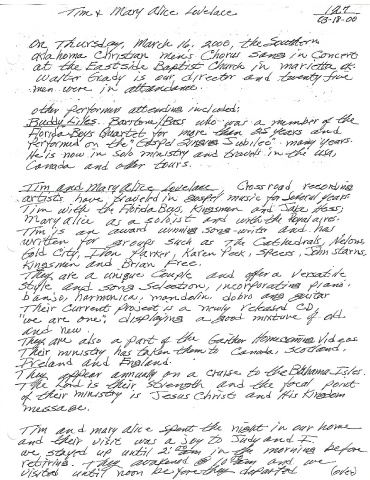 Tim & Mary Alice Lovelace 127
03-18-00
On Thursday, March 16, 2000, the Southern
Oklahoma Christian men's Chorus Sang in Concert
at the Eastside Baptist Church in marietta ok.
Walter Grady is our director and twenty five
men were in attendance.
other performers attending included:
Buddy Liles. Baritone/Bass who was a member of the
Florida Boys Quartet for more than 25 years and
performed on the "Gospel Singing Jubilee" many years.
He is now in Solo ministry and travels in the USA,
Canada and other tours.
Tim and Mary Alice Lovelace, Crossroad recording
artists have traveled in gospel music for Several years
Tim with the Florida Boys, Kingsmen and Jake Hess;
Mary Alice as a soloist and with the
Tim is an award winning song-writer and has
written for groups such as The Cathedrals, Nelons,
Gold City, Ivan Parker, Karen Peck, Speers, John Starns,
Kingsmen and Brian Free.
They are a unique Couple and offer a versatile
style and song Selection, incorporating piano,
banjo, harmonica, mandolin dobro and guitar
Their Current Project is a newly released CD,
"we are one"; displaying a good mixture of old
and new.
They are also a part of the Gaither Homecoming Videos
Their ministry has taken them to Canada, Scotland,
Ireland and England.
They appear annually on a cruise to the Bahama Isles.
The Lord is their strength and the focal point
of their ministry is Jesus Christ and His Kingdom
message.
Tim and mary alice spent the night in our home
and their visit was a joy to Judy and I.
we stayed up until 2: am in the morning before
retiring. They awakened @ 10 am and we
visited until noon before they departed (over)